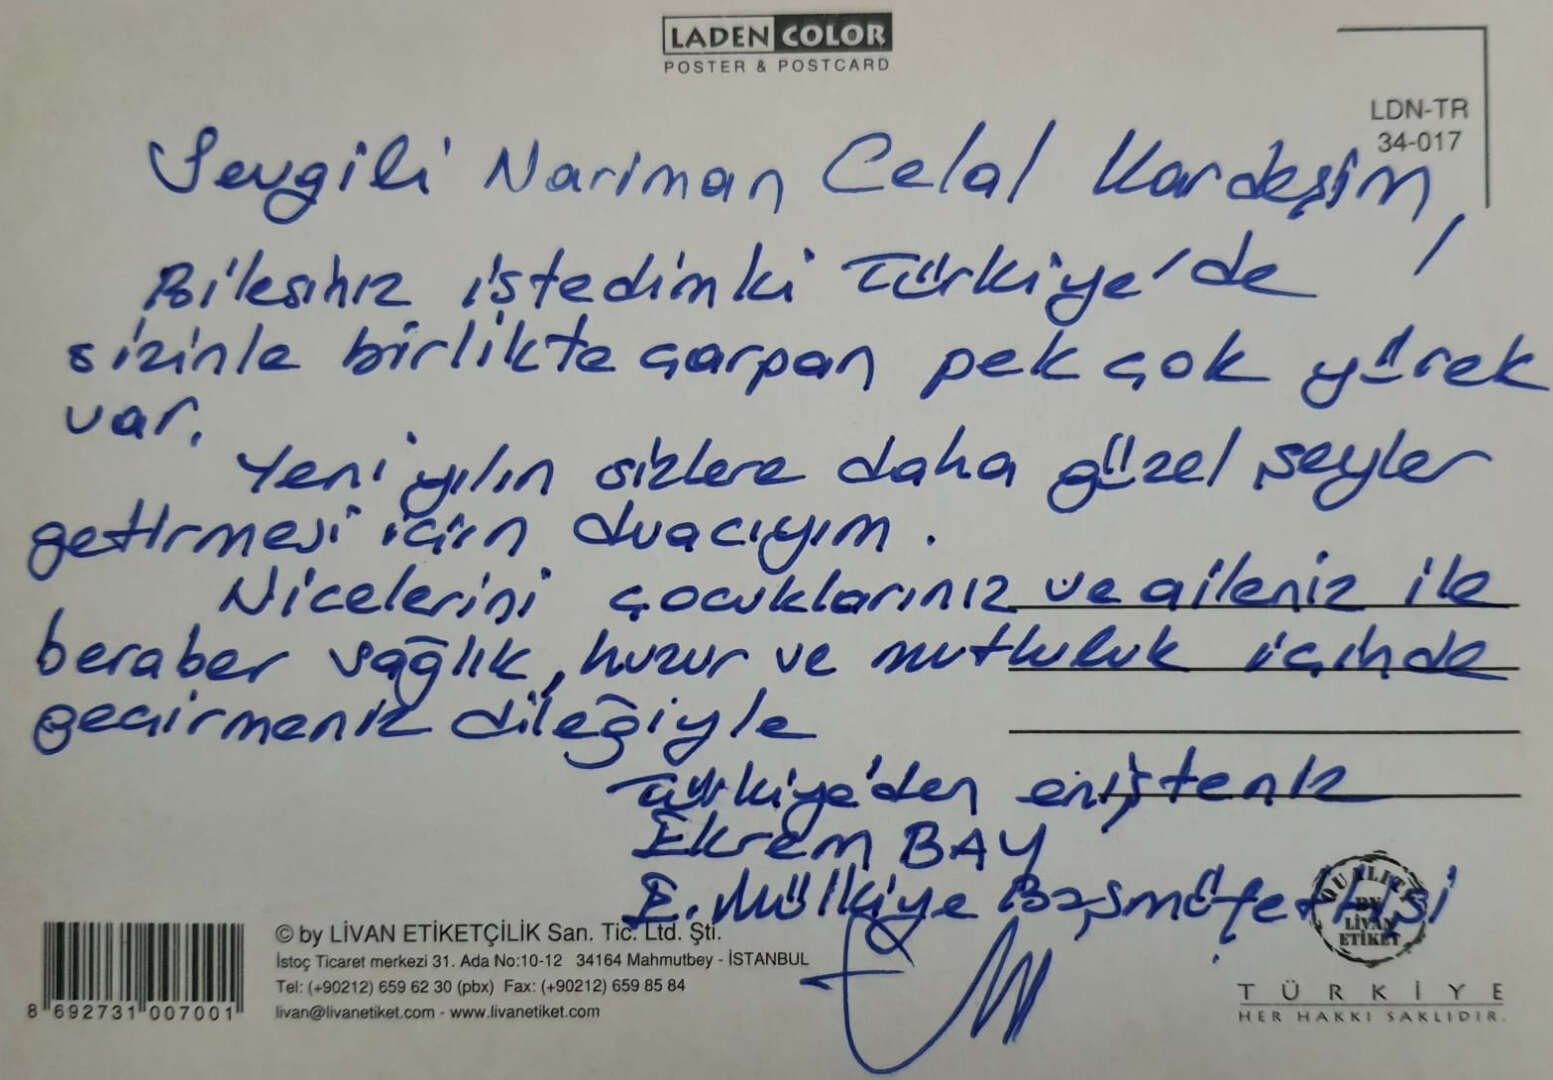 LADEN COLOR
POSTER & POSTCARD
LDN-TR
34-017
Sevgili Nariman Celal Kardeşim,
Bilesiniz istedimki Türkiye'de
sizinle birlikte çarpan pek çok yürek
var.
Yeni yılın sizlere daha güzel şeyler
getirmesi için duacıyım.
Nicelerini çocuklarınız ve aileniz ile
beraber sağlık, huzur ve mutluluk içinde
geçirmeniz dileğiyle
Türkiye'den enişteniz
Ekrem BAY
E. Mülkiye Başmüfettişi
QUALITY
BY
LİVAN
ETİKET
© by LİVAN ETİKETÇİLİK San. Tic. Ltd. Şti.
İstoç Ticaret merkezi 31. Ada No:10-12 34164 Mahmutbey - İSTANBUL
Tel: (+90212) 659 62 30 (pbx) Fax: (+90212) 659 85 84
livan@livanetiket.com - www.livanetiket.com
8 692731 007001
TÜRKİYE
HER HAKKI SAKLIDIR.